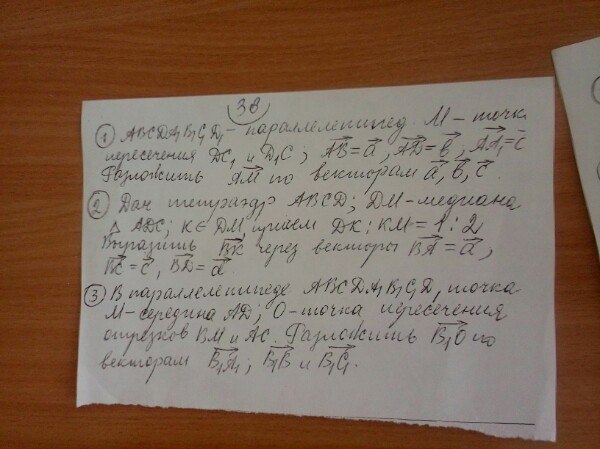 3в
① ABCDA₁B₁C₁D₁ - параллелепипед. М - точк
пересечения DC₁ и D₁C; AB = a, AD = b, AA₁ = c
Разложить AM по векторам a, b, c.
② Дан тетраэдр ABCD; DM - медиана
△ ADC; K ∈ DM, причем DK : KM = 1 : 2
Выразить BK через векторы BA = a,
BC = c, BD = d
③ В параллелепипеде ABCDA₁B₁C₁D, точка
M - середина AD; O - точка пересечения
отрезков BM и AC. Разложить B₁O по
векторам B₁A₁; B₁B и B₁C₁.